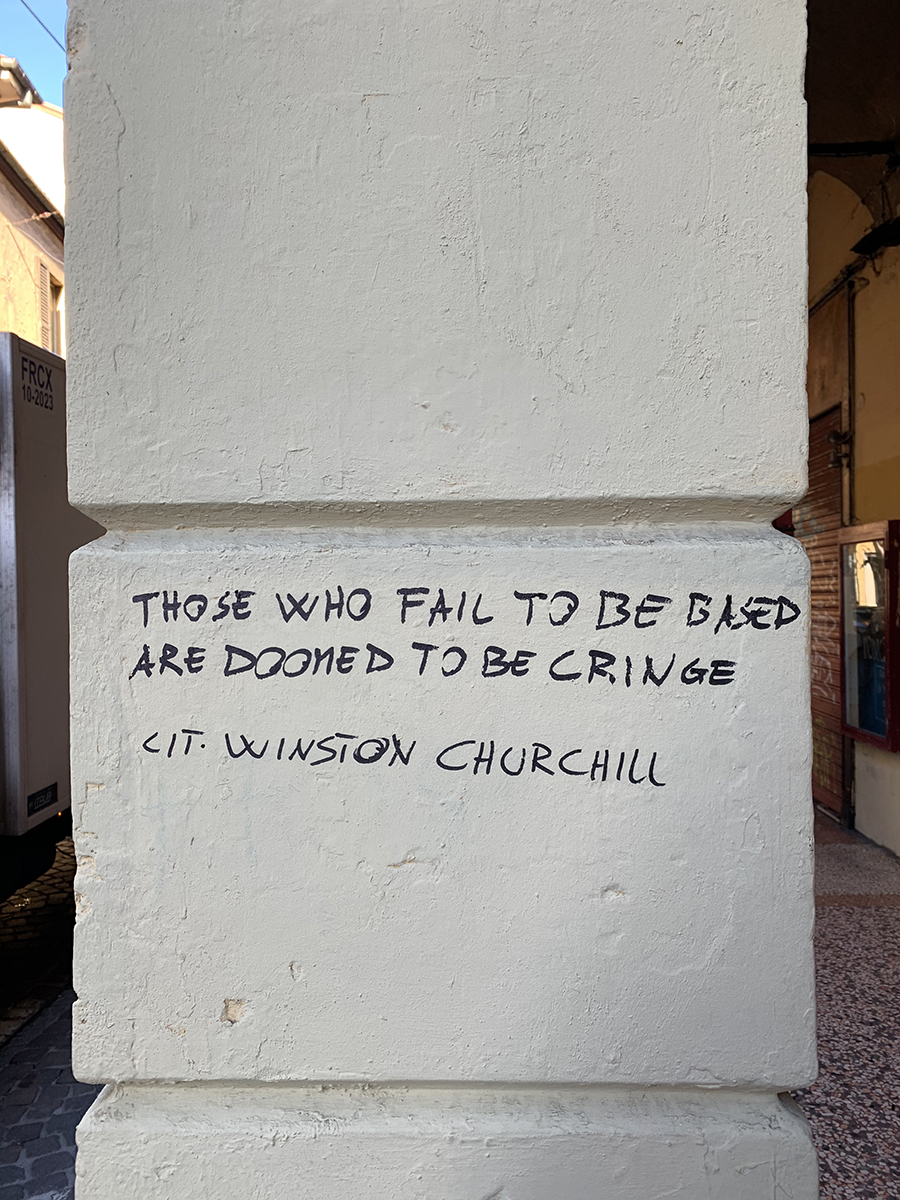 FRCX
10-2023
THOSE WHO FAIL TO BE BASED
ARE DOOMED TO BE CRINGE
CIT. WINSTON CHURCHILL